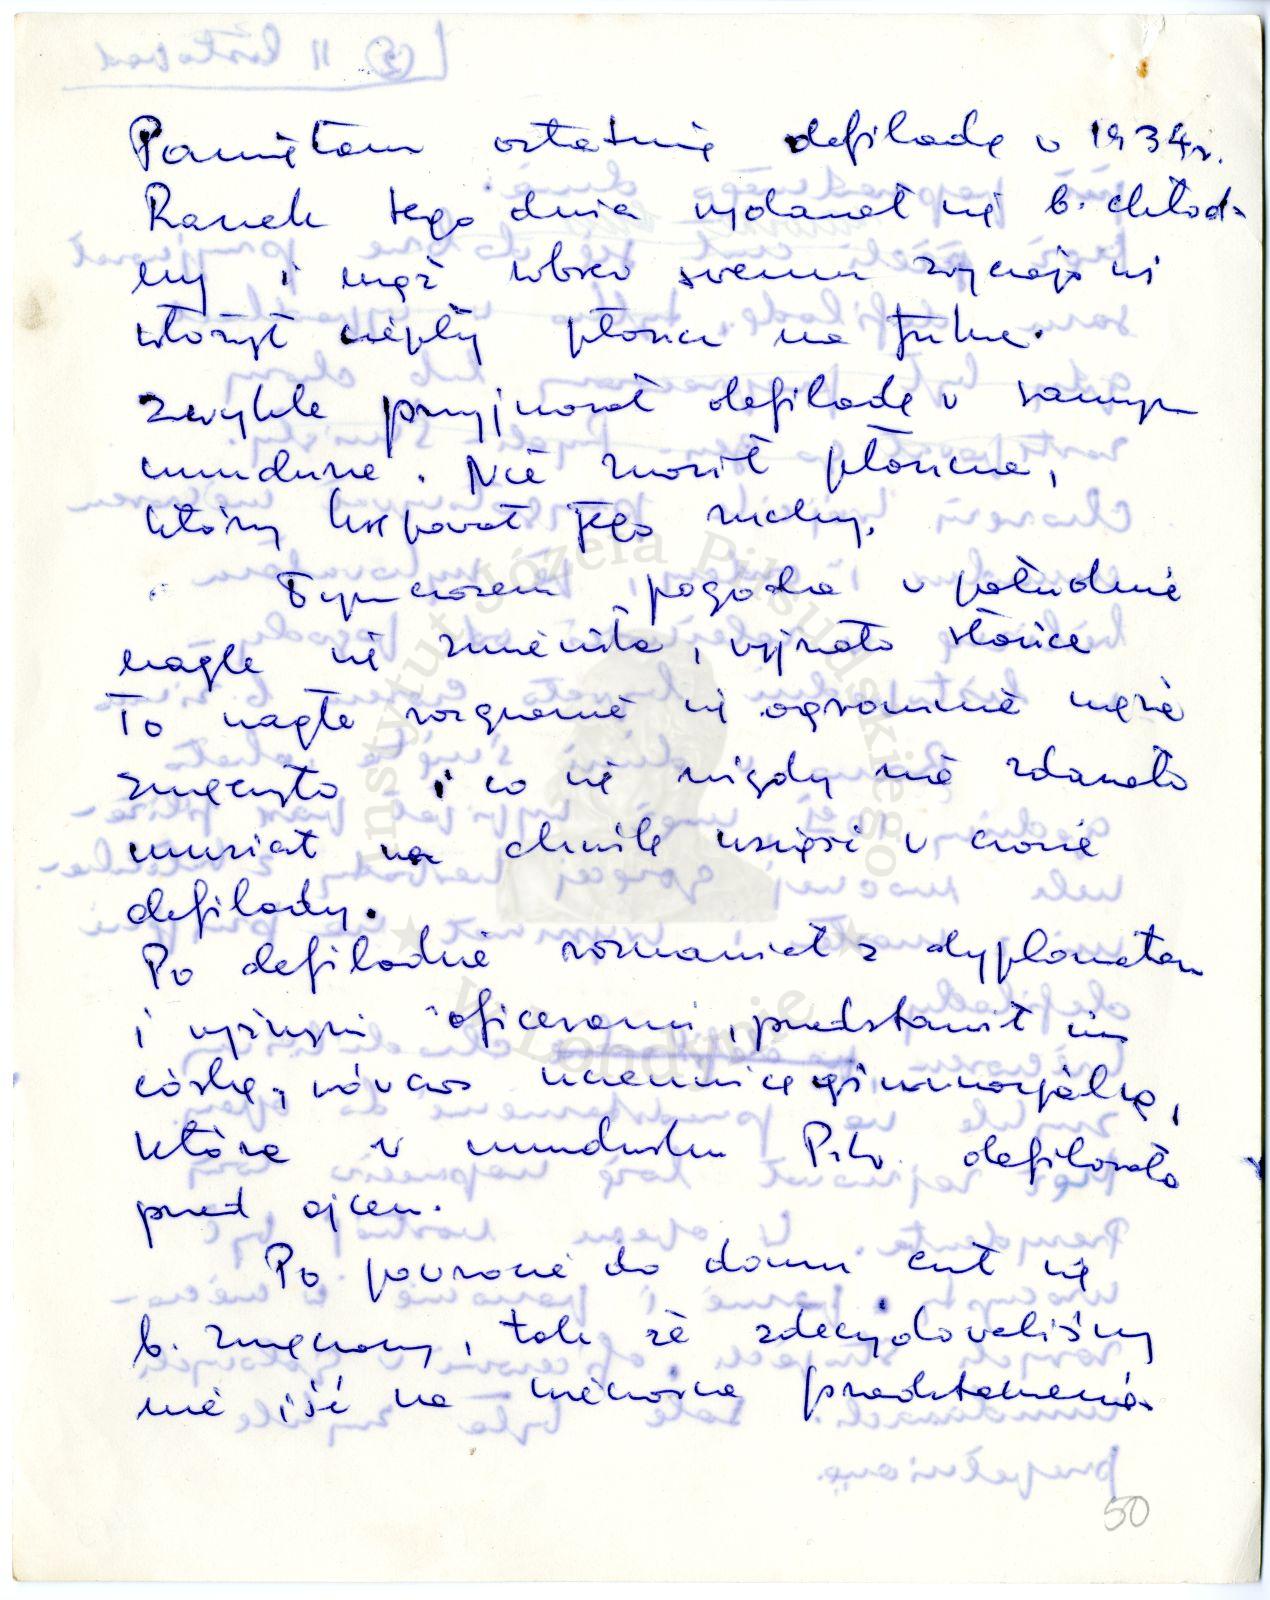 Pamiętam ostatnią defiladę w 1934 r.
Ranek tego dnia wydawał się b. chłod-
ny i mąż wbrew swemu zwyczajowi
włożył ciepły płaszcz na futrze.
Zwykle przyjmował defiladę w samym
mundurze. Nie znosił płaszcza,
który krępował jego ruchy.
Tymczasem pogoda w południe
nagle się zmieniła, wyjrzało słońce
To nagłe rozgrzanie się ogromnie męża
zmęczyło i co się nigdy nie zdarzało
musiał na chwilę usiąść w czasie
defilady.
Po defiladzie rozmawiał z dyplomatam
i wyższymi oficerami, przedstawił im
córkę, wówczas uczennicę gimnazjalną,
która w mundurku P.W. defilowała
przed ojcem.
Po powrocie do domu czuł się
b. zmęczony, tak że zdecydowaliśmy
nie iść na wieczorne przedstawienie.
50
Instytut Józefa Piłsudskiego
w Londynie